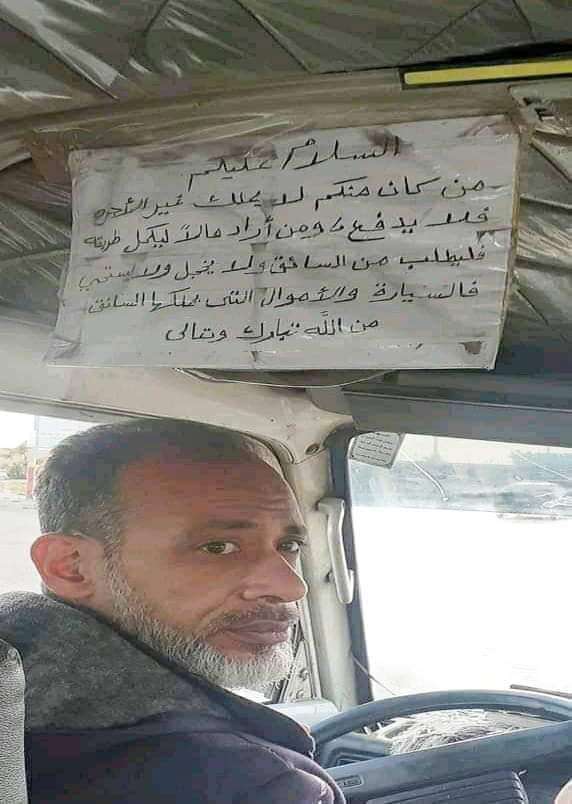 السلام عليكم
من كان منكم لا يملك غير الأجره
فلا يدفع ومن أراد مالاً ليكمل طريقه
فليطلب من السائق ولا يخجل ولا يستحي
فالسيارة والأموال التى يملكها السائق
من الله تبارك وتعالى